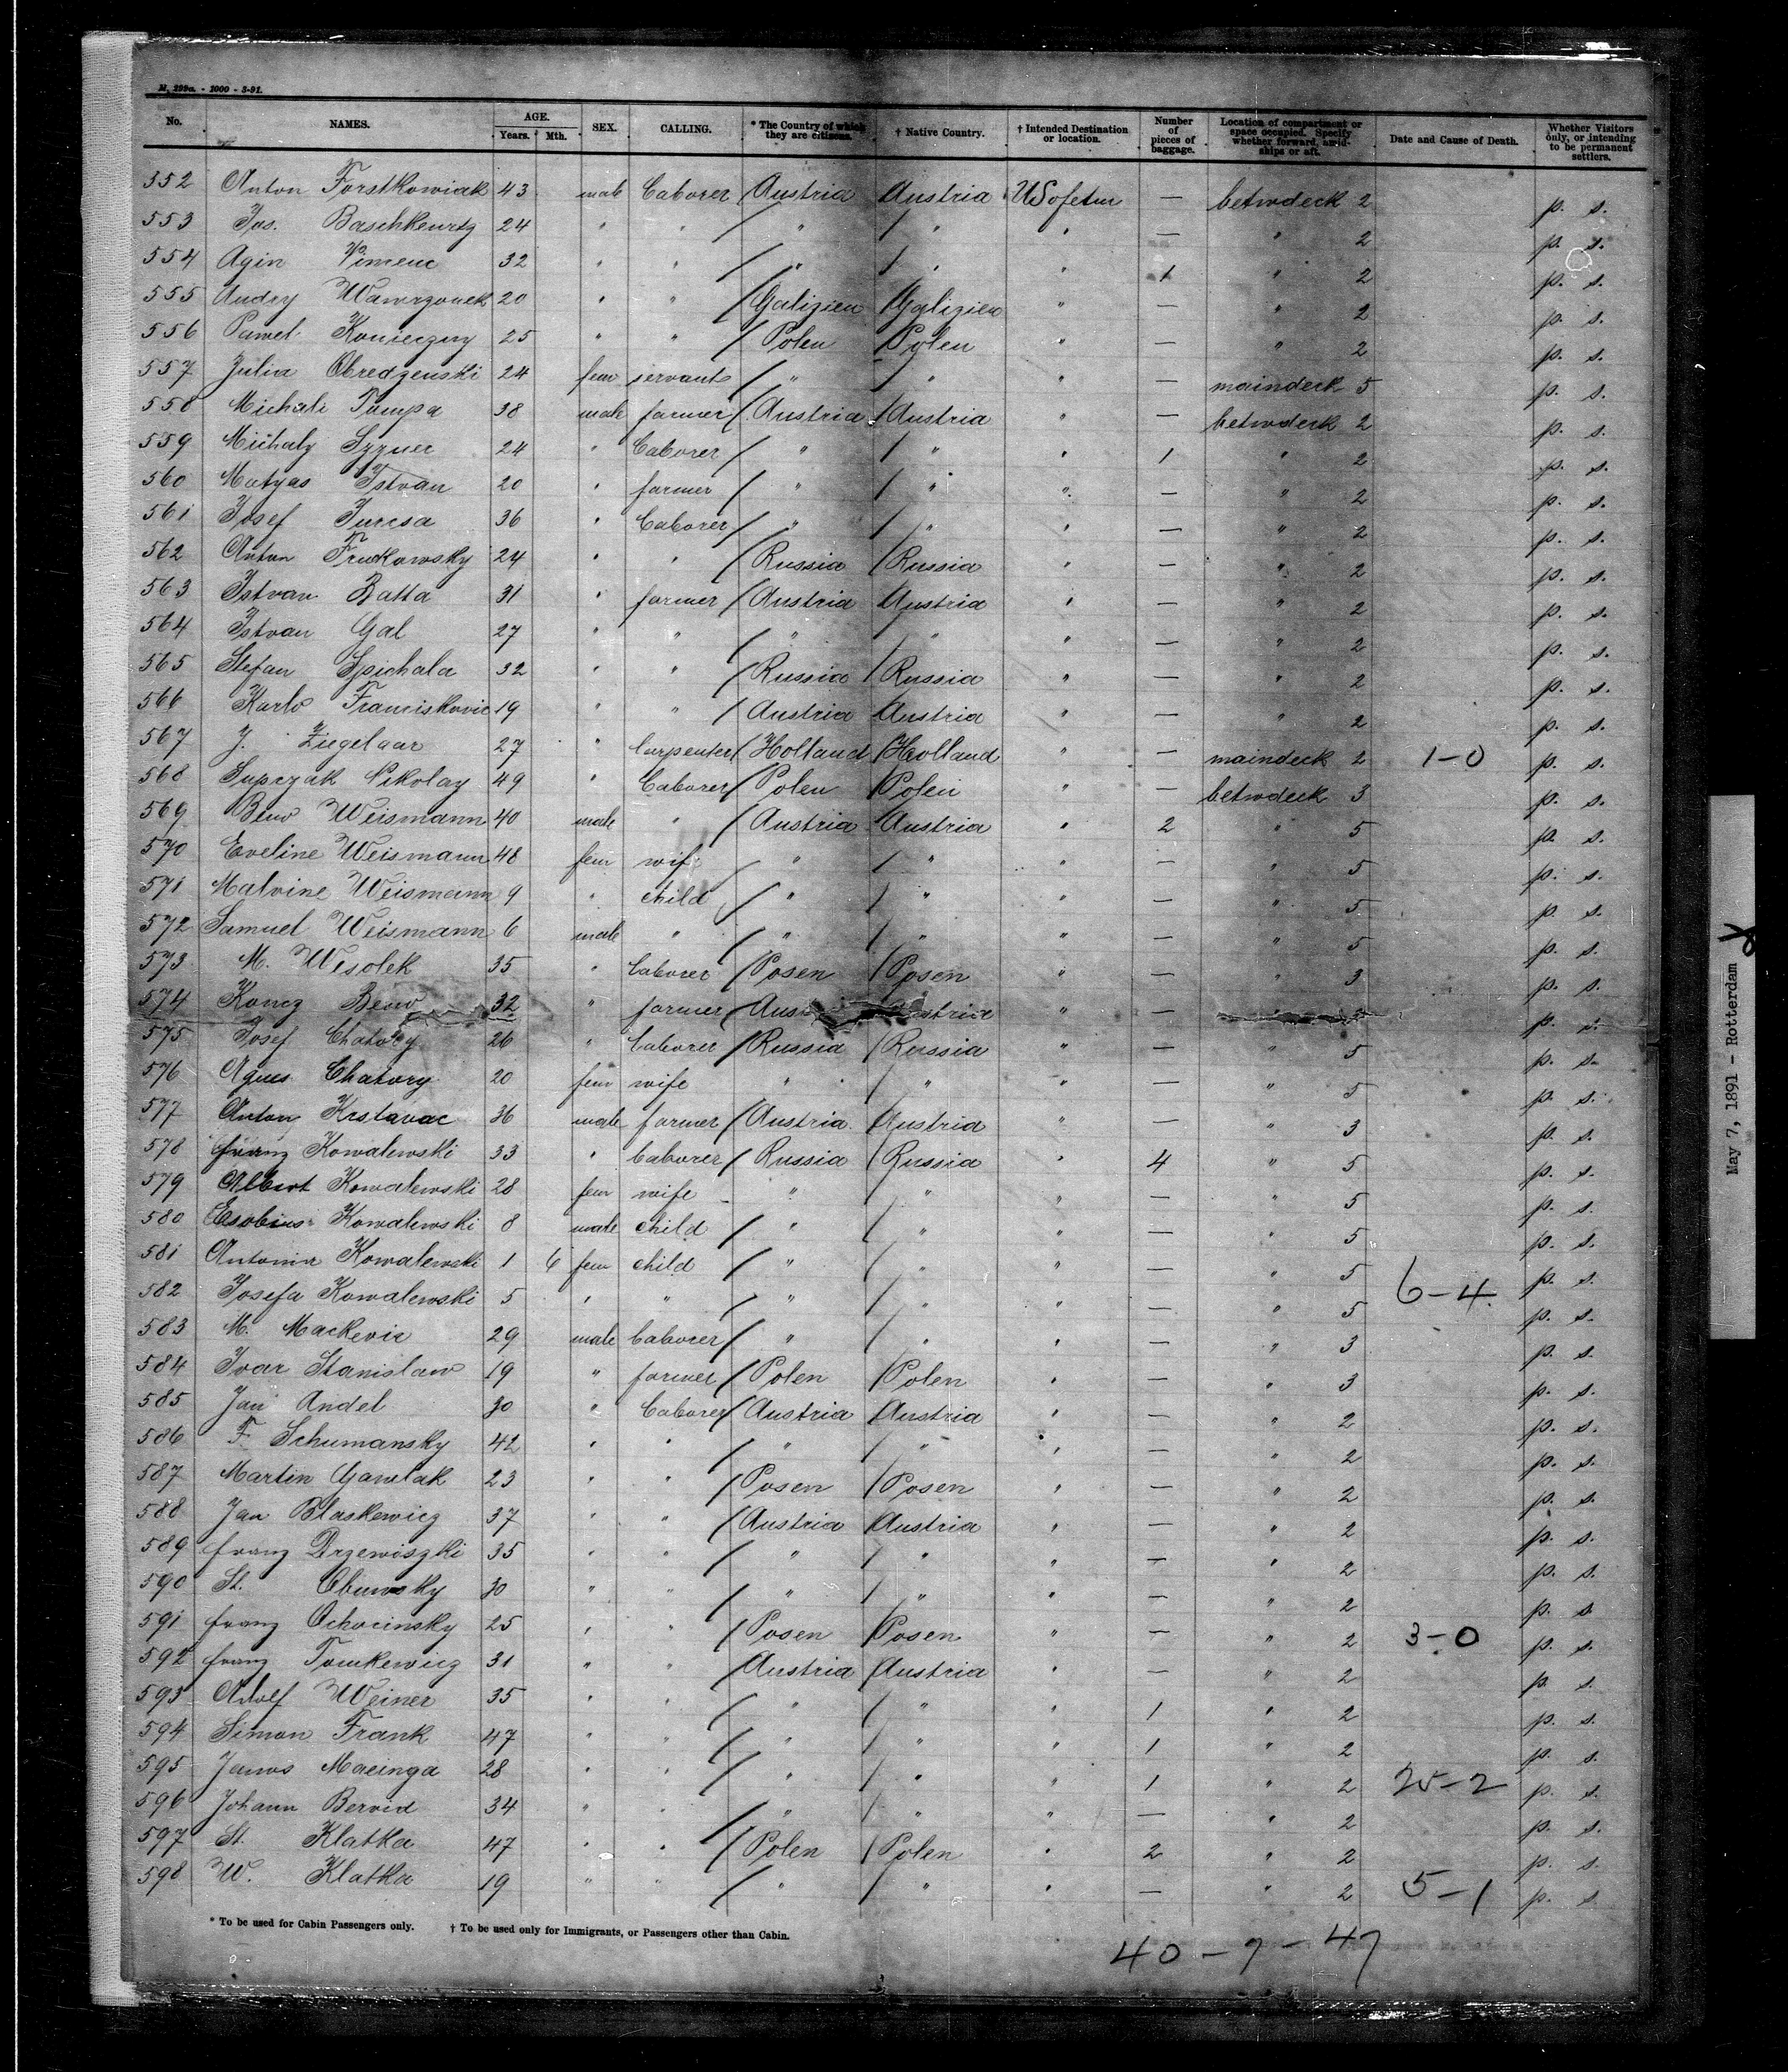 M. 299a. - 2000 - 3-91.
No. NAMES. AGE. Years. Mth. SEX. CALLING. * The Country of which they are citizens. † Native Country. † Intended Destination or location. Number of pieces of baggage. Location of compartment or space occupied. Specify whether forward, amidships or aft. Date and Cause of Death. Whether Visitors only, or intending to be permanent settlers.
552 Anton 43 male Laborer Austria Austria — betwdeck 2 p. s.
553 Jos. 24 " " " " " — " 2 p. s.
554 Agin 32 " " " " " 1 " 2 p. s.
555 Andry Wawrzonek 20 " " Galizien Galizien " — " 2 p. s.
556 Pawel Konieczny 25 " " Polen Polen " — " 2 p. s.
557 Julia Obredzenski 24 fem servants " " " — maindeck 5 p. s.
558 Michali Tompa 38 male farmer Austria Austria " — betwdeck 2 p. s.
559 Michaly 24 " Laborer " " " 1 " 2 p. s.
560 Matyas Istvan 20 " farmer " " " — " 2 p. s.
561 Josef Jurcsa 36 " Laborer " " " — " 2 p. s.
562 Anton Frudkowsky 24 " " Russia Russia " — " 2 p. s.
563 Istvan Batta 31 " farmer Austria Austria " — " 2 p. s.
564 Istvan Gal 27 " " " " " — " 2 p. s.
565 Stefan Spichala 32 " " Russia Russia " — " 2 p. s.
566 Karlo Franciskovic 19 " " Austria Austria " — " 2 p. s.
567 J. Ziegelaar 27 " Carpenter Holland Holland " — maindeck 2 1-0 p. s.
568 Supczak Nikolay 49 " Laborer Polen Polen " — betwdeck 3 p. s.
569 Weismann 40 male " Austria Austria " 2 " 5 p. s.
570 Eveline Weismann 48 fem wife " " " — " 5 p. s.
571 Malvine Weismann 9 " child " " " — " 5 p. s.
572 Samuel Weismann 6 male " " " " — " 5 p. s.
573 M. Wesolek 35 " Laborer Posen Posen " — " 3 p. s.
574 Koncz 32 " farmer Aus stria " — " p. s.
575 Josef Chatory 26 " Laborer Russia Russia " — " 5 p. s.
576 Agnes Chatory 20 fem wife " " " — " 5 p. s.
577 Anton Krstavac 36 male farmer Austria Austria " — " 3 p. s.
578 franz Kowalewski 33 " Laborer Russia Russia " 4 " 5 p. s.
579 Albert Kowalewski 28 fem wife " " " — " 5 p. s.
580 Kowalewski 8 male child " " " — " 5 p. s.
581 Antonia Kowalewski 1 6 fem child " " " — " 5 p. s.
582 Josefa Kowalewski 5 " " " " " — " 5 6-4 p. s.
583 M. Mackevic 29 male Laborer " " " — " 3 p. s.
584 Ivar Stanislaw 19 " farmer Polen Polen " — " 3 p. s.
585 Jan Andel 30 " Laborer Austria Austria " — " 2 p. s.
586 F. Schumansky 42 " " " " " — " 2 p. s.
587 Martin Gawelak 23 " " Posen Posen " — " 2 p. s.
588 Jan Blaskewicz 37 " " Austria Austria " — " 2 p. s.
589 franz Drzewiszki 35 " " " " " — " 2 p. s.
590 St. 30 " " " " " — " 2 p. s.
591 franz Ochocinsky 25 " " Posen Posen " — " 2 3-0 p. s.
592 franz Tomkewicz 31 " " Austria Austria " — " 2 p. s.
593 Adolf Weiner 35 " " " " " 1 " 2 p. s.
594 Simon Frank 47 " " " " " 1 " 2 p. s.
595 Janos Macinga 28 " " " " " 1 " 2 25-2 p. s.
596 Johann Bervid 34 " " " " " — " 2 p. s.
597 St. Klatka 47 " " Polen Polen " 2 " 2 p. s.
598 W. Klatka 19 " " " " " — " 2 5-1 p. s.
* To be used for Cabin Passengers only. † To be used only for Immigrants, or Passengers other than Cabin.
40 - 7 - 47
May 7, 1891 - Rotterdam